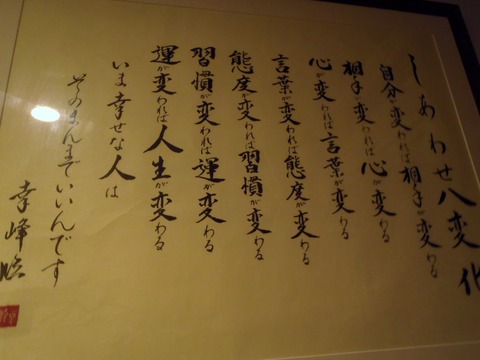 しあわせ八変化
自分が変われば相手が変わる
相手が変われば心が変わる
心が変われば言葉が変わる
言葉が変われば態度が変わる
態度が変われば習慣が変わる
習慣が変われば運が変わる
運が変われば人生が変わる
いま幸せな人は
そのまんまでいいんです
幸峰